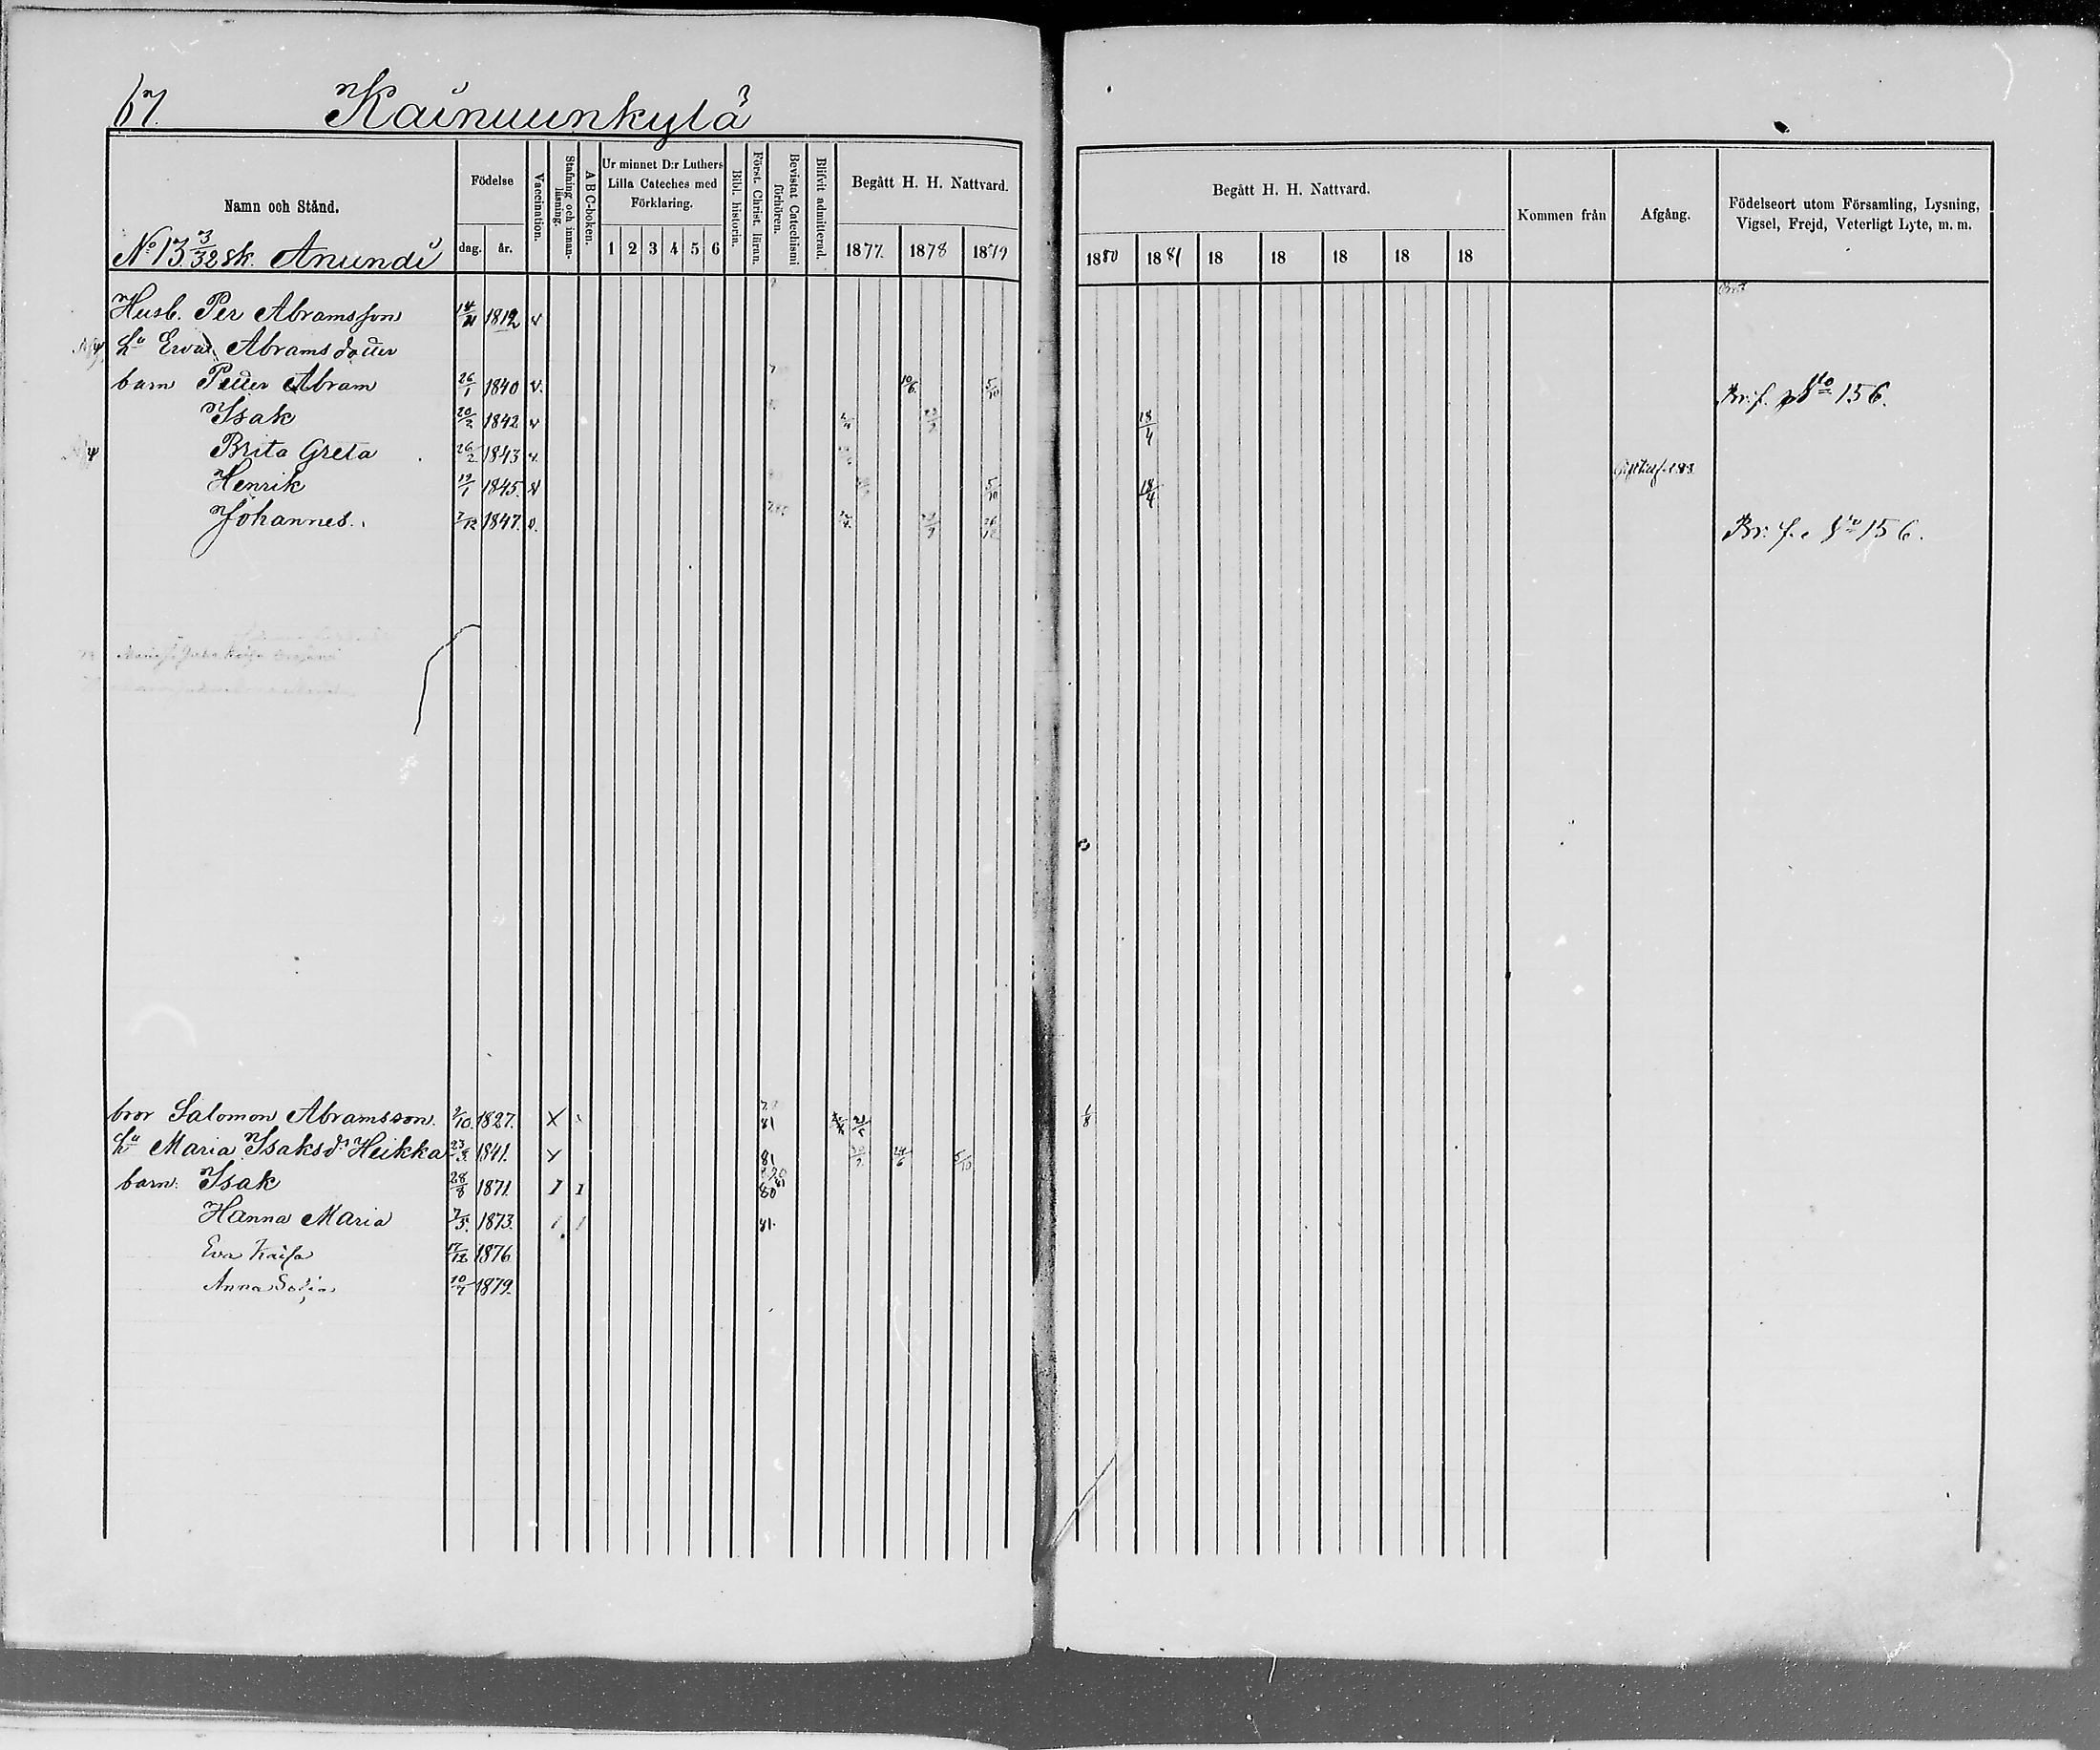 67. Kainuunkylä
Namn och Stånd.
Födelse
dag. år.
Vaccination.
Stafning och innan-läsning.
A B C-boken.
Ur minnet D:r Luthers Lilla Cateches med Förklaring.
1 2 3 4 5 6
Bibl. historia.
Först. Christ. läran.
Bevistat Catechismi förhören.
Blifvit admitterad.
Begått H. H. Nattvard.
1877. 1878 1879
Begått H. H. Nattvard.
1880 1881 18 18 18 18 18
Kommen från
Afgång.
Födelseort utom Församling, Lysning, Vigsel, Frejd, Veterligt Lyte, m. m.
No 13. 3/32 sk. Anundi
Husb. Per Abramsson 1812 v
hu Eva Abramsdotter
barn Petter Abram 26/1 1840 v. 10/6 5/10 Br. f. 156.
Isak 20/2 1842 v 18/4
Brita Greta 26/2 1843 v.
Henrik 19/1 1845. v 5/10 18/4
Johannes. 7/12 1847. v. Br. f. 156.
bror Salomon Abramsson. 2/10 1827. x 81 1/8
hu Maria Isaksdr Heikka 23/3 1841. x 81 24/6 5/10
barn: Isak 28/8 1871. 1 1 80 81
Hanna Maria 7/5. 1873. 1 1 81.
Eva Kaisa 17/12 1876
Anna Sofia 10/7 1879.